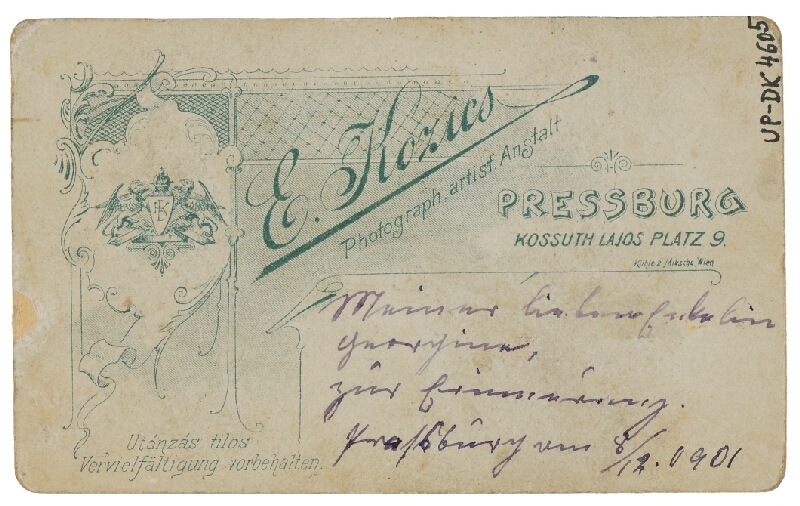 UP-DK 4605
E. Kozics
Photograph. artist. Anstalt
PRESSBURG
KOSSUTH LAJOS PLATZ 9.
Wien
Meiner lieben Enkelin
Georgine,
zur Erinnerung.
Pressburg am 8/12. 1901
Utánzás tilos
Vervielfältigung vorbehalten.